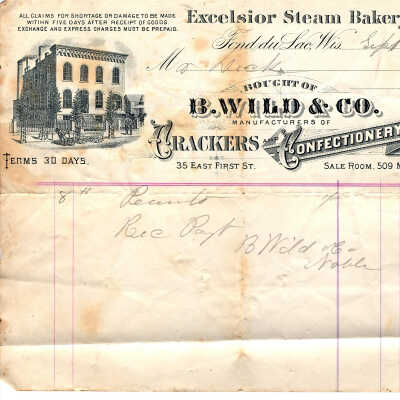 ALL CLAIMS FOR SHORTAGE OR DAMAGE TO BE MADE
WITHIN FIVE DAYS AFTER RECEIPT OF GOODS
EXCHANGE AND EXPRESS CHARGES MUST BE PREPAID.
Excelsior Steam Baker
Fond du Lac, Wis. Sept
M
BOUGHT OF
B. WILD & CO.
MANUFACTURERS OF
CRACKERS AND CONFECTIONERY
TERMS 30 DAYS.
35 EAST FIRST ST.
SALE ROOM, 509 M
8 Peanuts
Rec Payt
B Wild & Co
Noble